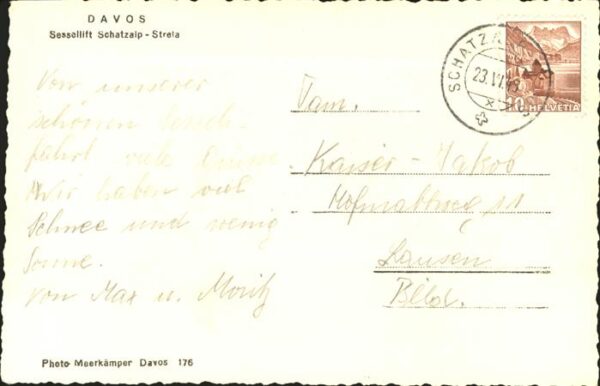 DAVOS
Sessellift Schatzalp - Strela
Von unserer
schönen Sessel-
fahrt viele Grüsse
Wir haben viel
Schnee und wenig
Sonne.
von Max u. Moritz
Fam.
Kaiser-Jakob
11
Lausen
Blld.
SCHATZALP
23.VI.
HELVETIA
Photo Meerkämper Davos 176